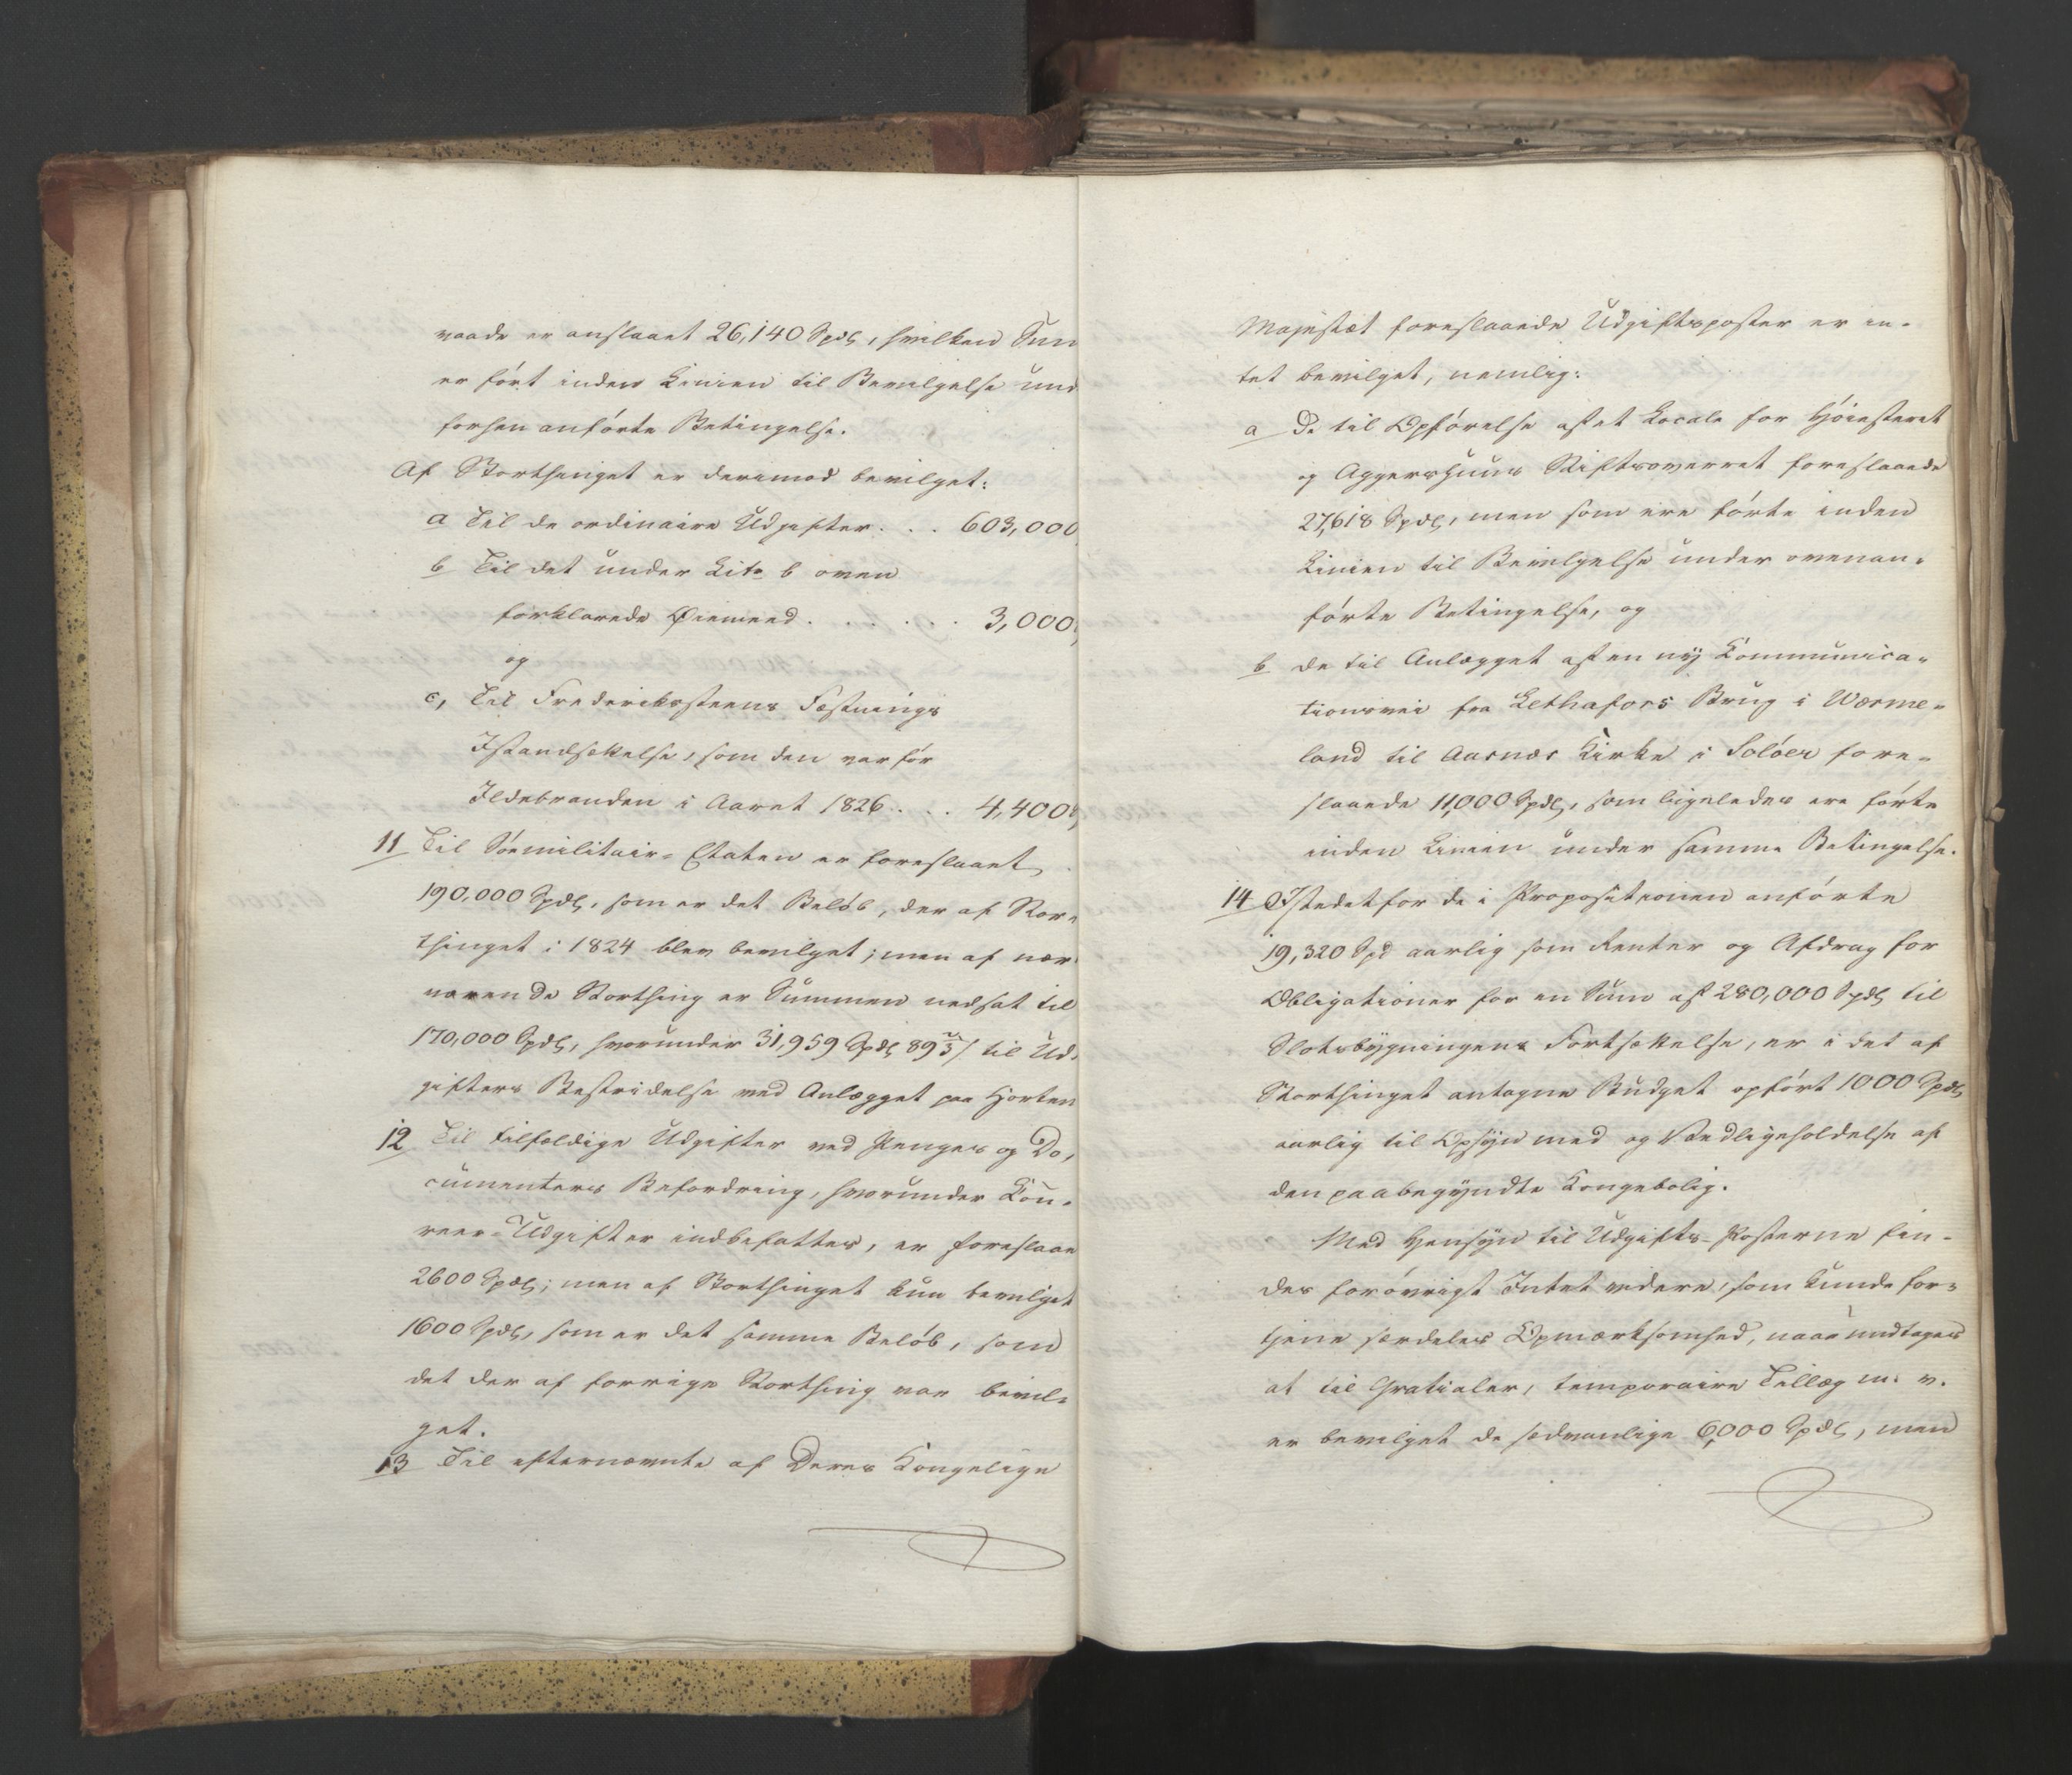 vaade er anslaaet 26,140 Spdlr, hvilken Sum
er ført inden Linien til Bevilgelse und
forhen anførte Betingelse.
Af Storthinget er derimod bevilget:
a Til de ordinaire Udgifter . . . 603,000
b Til det under Litr b oven
forklarede Øiemeed . . . . . . 3,000
og
c, Til Frederikssteens Fæstnings
Istandsættelse, som den var før
Ildebranden i Aaret 1826 . . . 4,400
11 Til Sømilitair-Etaten er foreslaaet
190,000 Spdlr, som er det Beløb, der af Stor-
thinget i 1824 blev bevilget; men af nær-
værende Storthing er Summen nedsat til
170,000 Spdlr, hvorunder 31,959 Spdlr 89 2/3 / til Ud-
gifters Bestridelse ved Anlægget paa Horten
12 Til tilfældige Udgifter ved Penges og Do-
cumenters Befordring, hvorunder Cou-
reer-Udgifter indbefattes, er foreslaae
2600 Spdlr; men af Storthinget kun bevilget
1600 Spdlr, som er det samme Beløb, som
det der af forrige Storthing var bevil-
get.
13 Til efternævnte af Deres Kongelige
Majestæt foreslaaede Udgiftsposter er in-
tet bevilget, nemlig:
a De til Opførelse af et Locale for Høiesteret
og Aggershuus Stiftsoverret foreslaaede
27,618 Spdlr, men som ere førte inden
Linien til Bevilgelse under ovenan-
førte Betingelse, og
b de til Anlægget af en ny Communica-
tionsvei fra Lethafors Brug i Wærme-
land til Aasnæs Kirke i Soløer fore-
slaaede 11,000 Spdlr, som ligeledes ere førte
inden Linien under samme Betingelse.
14 Istedetfor de i Propositionen anførte
19,320 Spd aarlig som Renter og Afdrag for
Obligationer for en Sum af 280,000 Spdlr til
Slotsbygningens Fortsættelse, er i det af
Storthinget antagne Budget opført 1000 Spdlr
aarlig til Opsyn med og Vedligeholdelse af
den paabegyndte Kongebolig.
Med Hensyn til Udgifts-Posterne fin-
des forøvrigt Intet videre, som kunde for-
tjene særdeles Opmærksomhed, naar undtages
at til Gratialer, temporaire Tillæg m. v.
er bevilget de sædvanlige 6,000 Spdlr, men